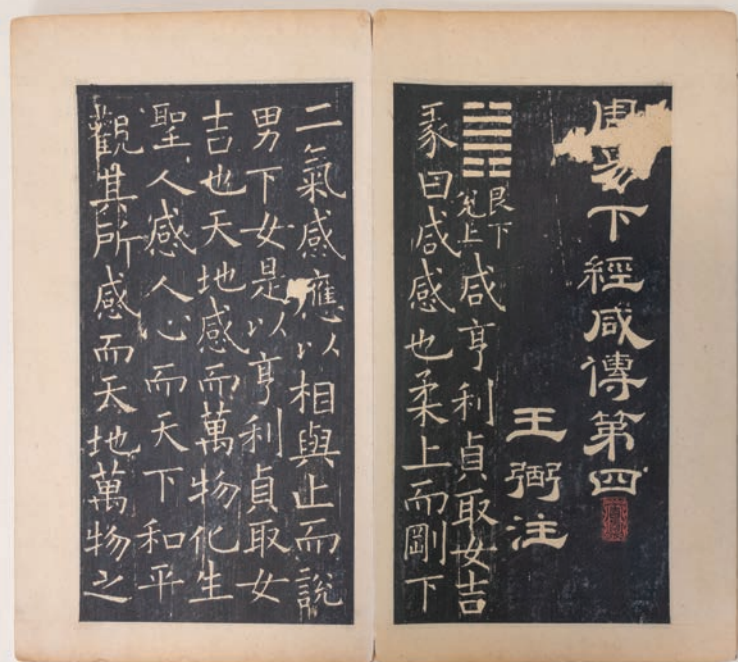 周易下經咸傳第四
王弼注
艮下
兌上
咸亨利貞取女吉
彖曰咸感也柔上而剛下
二氣感應以相與止而說
男下女是以亨利貞取女
吉也天地感而萬物化生
聖人感人心而天下和平
觀其所感而天地萬物之